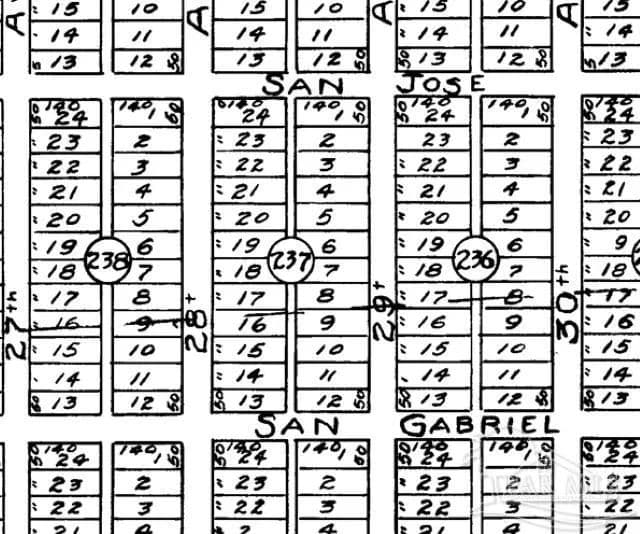 A 15 10 A 15 10 A 15 10 A 15
" 14 11 14 11 " 14 11 " 14
5 13 12 50 13 12 50 50 13 12 50 5 13
SAN JOSE
50 140 140 50 140 140 50 50 140 140 50 50 140
24 1 24 1 24 1 24
" 23 2 " 23 2 23 2 " 23
" 22 3 " 22 3 " 22 3 " 22
" 21 4 " 21 4 " 21 4 " 21
" 20 5 " 20 5 " 20 5 " 20
" 19 238 6 " 19 237 6 " 19 236 6 9
" 18 7 " 18 7 " 18 7 " 18
27th " 17 8 28t " 17 8 29t 17 8 30th 17
" 16 9 16 9 " 16 9 " 16
" 15 10 " 15 10 " 15 10 " 15
14 11 " 14 11 " 14 11 " 14
50 13 12 50 50 13 12 50 50 13 12 50 50 13
SAN GABRIEL
50 140 140 50 50 140 140 50 50 140 140 50 50 140
24 1 24 1 24 1 24
" 23 2 " 23 2 " 23 2 " 23
" 22 3 " 22 3 " 22 3 " 22
21 4 2 4 21 4 21